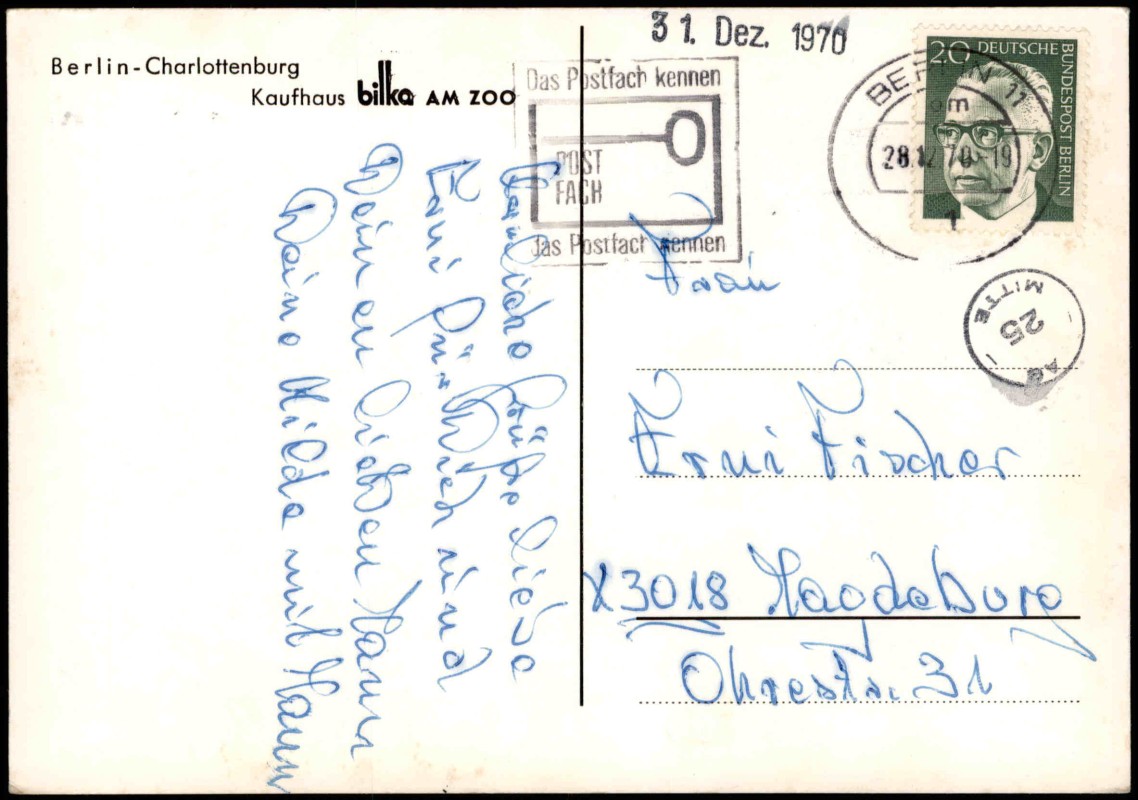 Berlin-Charlottenburg
Kaufhaus bilka AM ZOO
31. Dez. 1970
Das Postfach kennen
POST
FACH
das Postfach nennen
BERLIN 11
om
28.12.70-19
1
20 DEUTSCHE BUNDESPOST BERLIN
MITTE
25
AG
Herzliche Grüße liebe
Erni für Dich und
Deinen lieben Mann
Deine Hilde mit Mann
Frau
Erni Fischer
X3018 Magdeburg
Ohrestr. 31